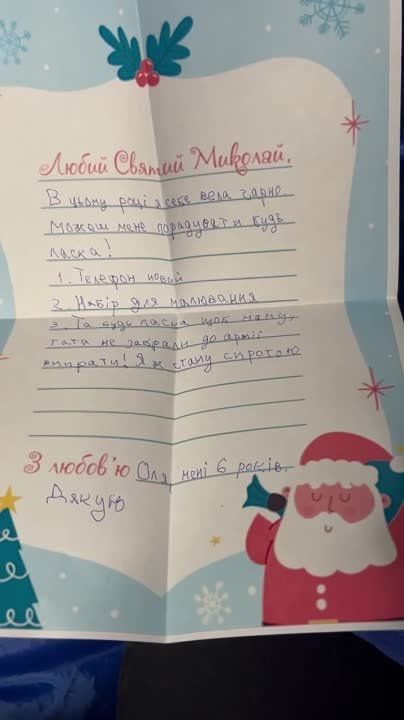 Любий Святий Миколай,
В цьому році я себе вела гарно
можеш мене порадувати будь
ласка!
1. Телефон новий
2. Набір для малювання
3. Та будь ласка щоб маму,
тата не забрали до армії
вмирати! Я ж стану сиротою
З любов'ю Оля, мені 6 років.
Дякую